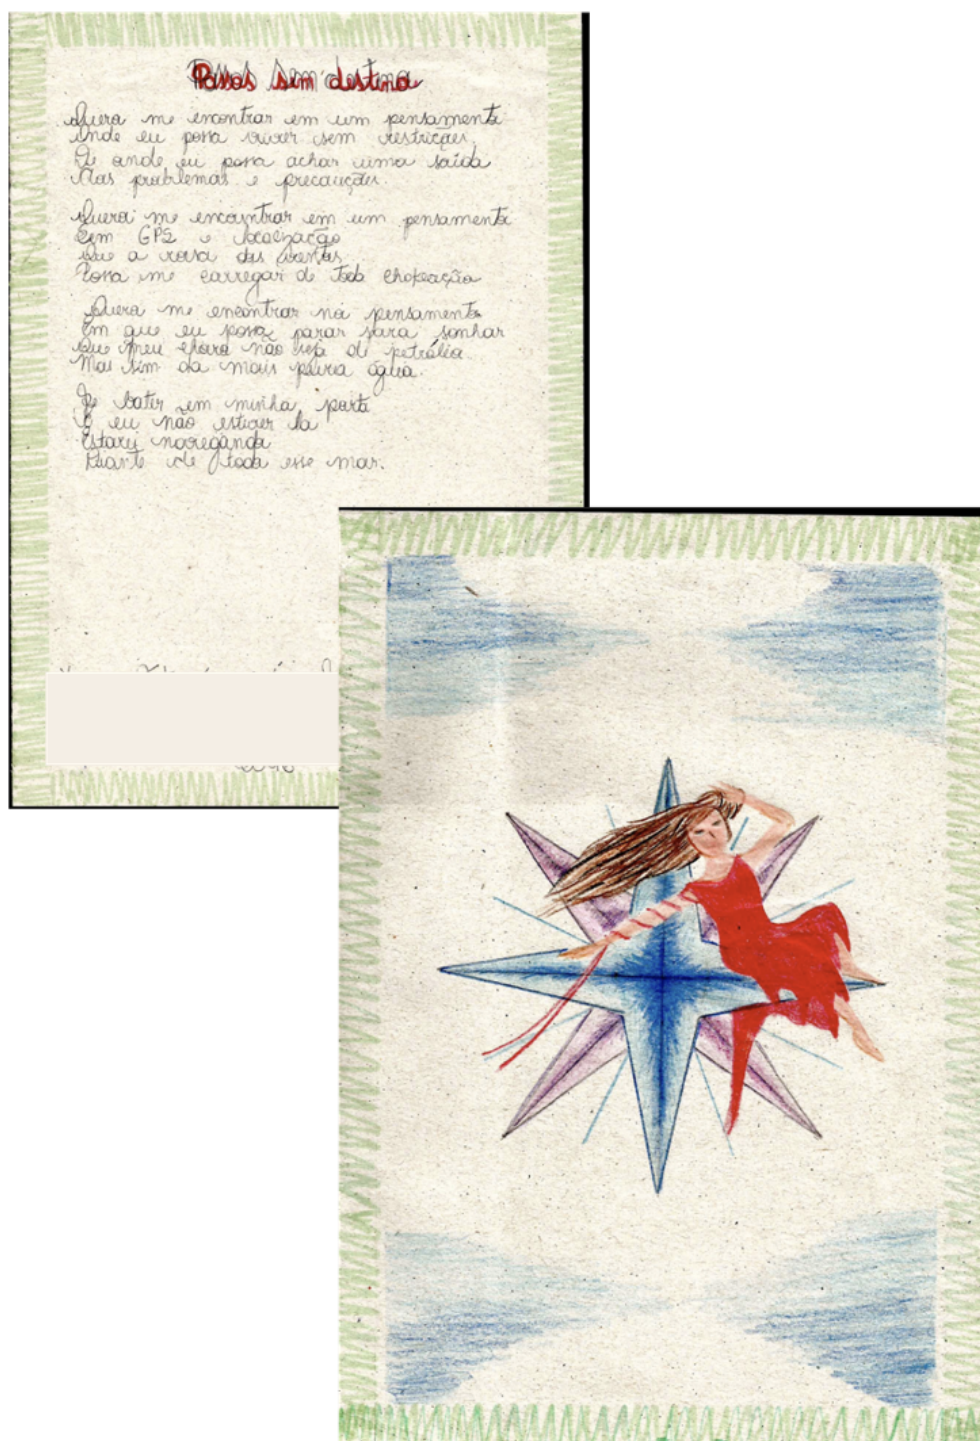 Passos sem destino
Quero me encontrar em um pensamento
Onde eu possa viver sem restrições
De onde eu possa achar uma saída
Nas problemas e precauções.
Quero me encontrar em um pensamento
Sem GPS e localização
Que a rosa dos ventos
Possa me carregar de toda
Quero me encontrar no pensamento
Em que eu possa parar para sonhar
Que meu choro não seja de petróleo
Mas sim da mais pura água.
Se bater em minha porta
E eu não estiver la
Estarei navegando
Diante de todo esse mar.